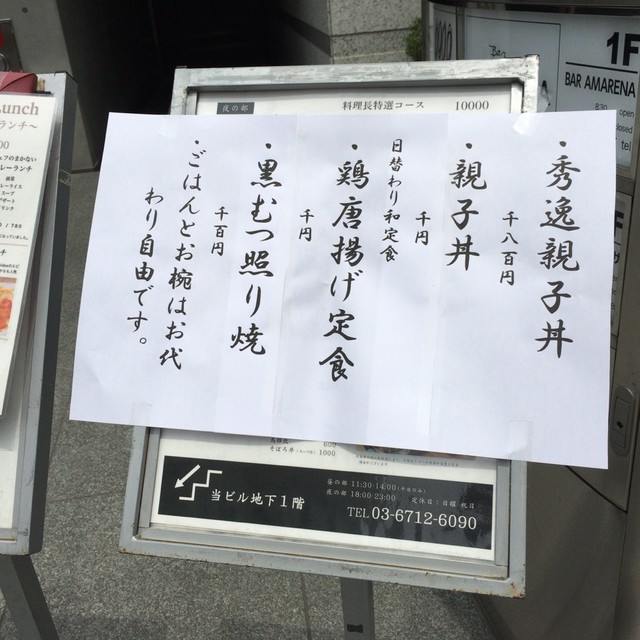 ・秀逸親子丼
千八百円
・親子丼
千円
日替わり和定食
・鶏唐揚げ定食
千円
・黒むつ照り焼
千百円
・ごはんとお椀はお代
わり自由です。
夜の部 料理長特選コース 10000
600
そぼろ丼 1000
当ビル地下1階
昼の部 11:30-14:00
夜の部 18:00-23:00 定休日:日曜 祝日
TEL 03-6712-6090
Lunch
ランチ〜
Bar
1F
BAR AMARENA
open
closed
tel